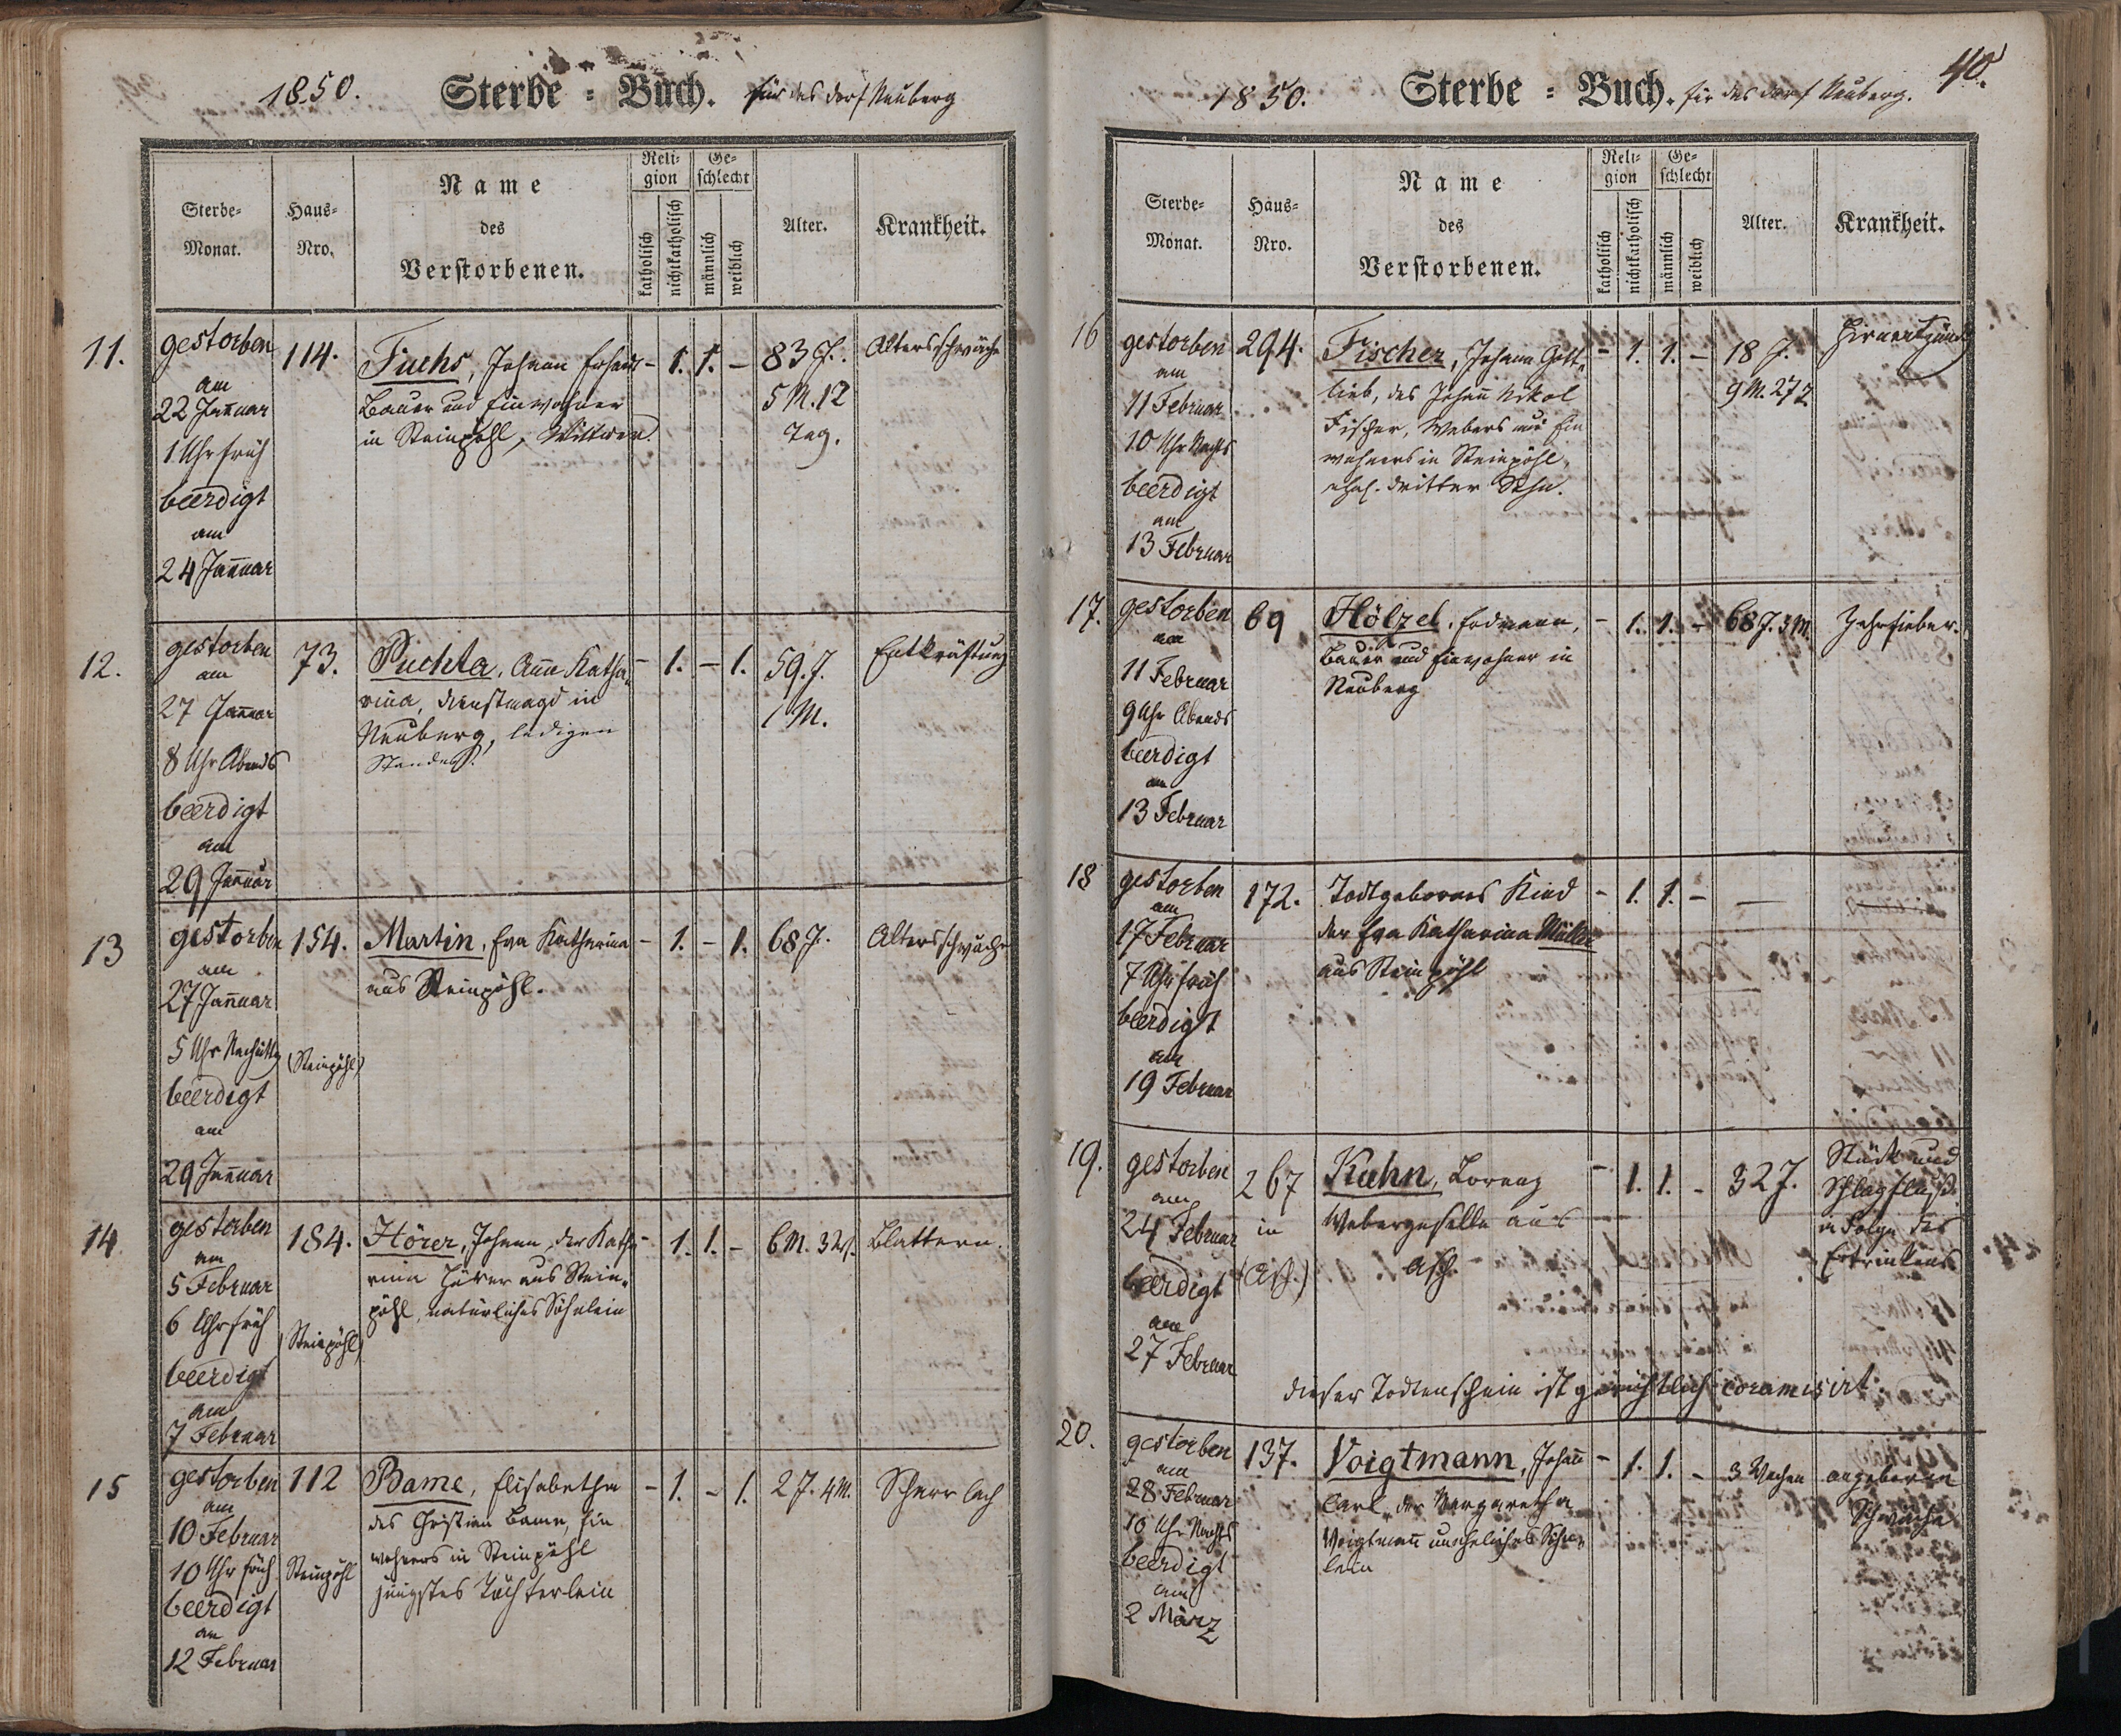 1850. Sterbe = Buch. für das Dorf Neuberg
Sterbe-
Monat.
Haus-
Nro.
Name
des
Verstorbenen.
Reli-
gion
katholisch
nichtkatholisch
Ge-
schlecht
männlich
weiblich
Alter.
Krankheit.
11.
gestorben
am
22 Januar
1 Uhr früh
beerdigt
am
24 Januar
114.
Fuchs, Johann Erhard
Bauer und Einwohner
in Steinpöhl, Wittwer.
- 1. 1. -
83 J.
5 M. 12
Tag.
Altersschwäche
12.
gestorben
am
27 Januar
8 Uhr Abends
beerdigt
am
29 Januar
73.
Puchta, Anna Katha-
rina, Dienstmagd in
Neuberg, ledigen
Standes.
- 1. - 1.
59. J.
1 M.
Entkräftung
13
gestorben
am
27 Januar
5 Uhr Nachmittg
beerdigt
am
29 Januar
154.
(Steinpöhl)
Martin, Eva Katharina
aus Steinpöhl.
- 1. - 1.
68 J.
Altersschwäche
14
gestorben
am
5 Februar
6 Uhr früh
beerdigt
am
7 Februar
184.
(Steinpöhl)
Hörer, Johann, der Katha-
rina Hörer aus Stein-
pöhl, natürliches Söhnlein
- 1. 1. -
6 M. 3 W.
Blattern.
15
gestorben
am
10 Februar
10 Uhr früh
beerdigt
am
12 Februar
112
Steinpöhl
Bame, Elisabetha
des Christian Bame, Ein
wohners in Steinpöhl
jüngstes Töchterlein
- 1. - 1.
2 J. 4 M.
Scharrlach
1850. Sterbe = Buch. für das Dorf Neuberg. 40.
Sterbe-
Monat.
Haus-
Nro.
Name
des
Verstorbenen.
Reli-
gion
katholisch
nichtkatholisch
Ge-
schlecht
männlich
weiblich
Alter.
Krankheit.
16
gestorben
am
11 Februar
10 Uhr Nachts
beerdigt
am
13 Februar
294.
Fischer, Johann Gott-
lieb, des Johann Nikol
Fischer, Webers und Ein
wohners in Steinpöhl,
ehel. dritter Sohn.
- 1. 1. -
18 J.
9 M. 27
17.
gestorben
am
11 Februar
9 Uhr Abends
beerdigt
am
13 Februar
69
Hölzel, Erdmann,
Bauer und Einwohner in
Neuberg
- 1. 1. -
68 J. 3 M.
Zehrfieber.
18
gestorben
am
17 Februar
7 Uhr früh
beerdigt
am
19 Februar
172.
Todtgebornes Kind
der Eva Katharina Müller
aus Steinpöhl
- 1. 1. -
—
19.
gestorben
am
24 Februar
beerdigt
am
27 Februar
267
in
(Asch.)
Kuhn, Lorenz
Webergeselle aus
Asch.
- 1. 1. -
32 J.
und
Schlagfluß
in Folge des
Ertrinkens
dieser Todtenschein ist gerichtlich coramisirt
20.
gestorben
am
28 Februar
10 Uhr Nachts
beerdigt
am
2 März
137.
Voigtmann, Johann
Carl, der Margaretha
Voigtmann uneheliches Söhn-
lein
- 1. 1. -
3 Wochen
angeborene
Schwäche